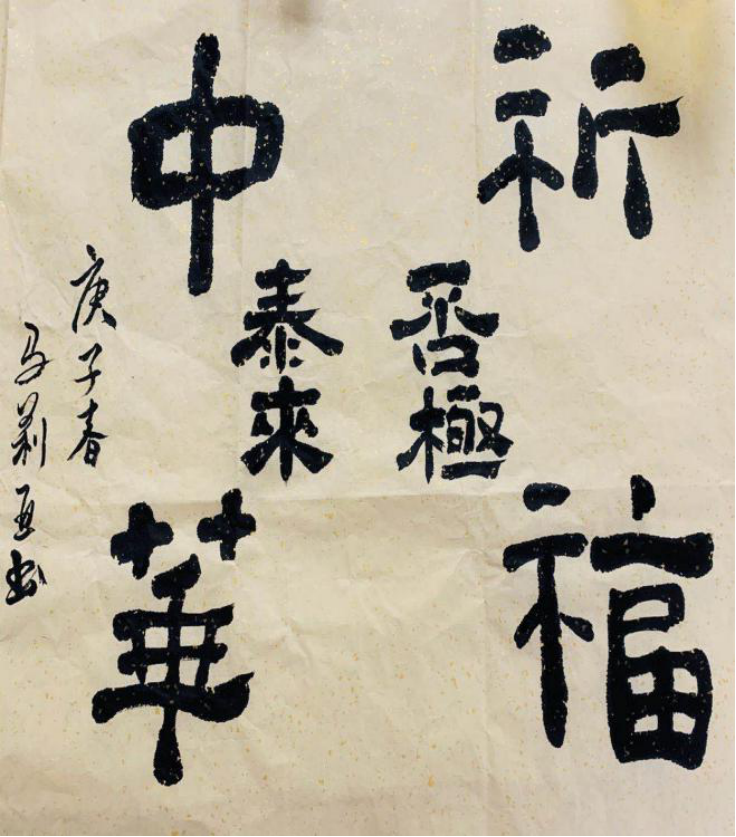 祈福
否極
泰來
中華
庚子春
马莉亚书